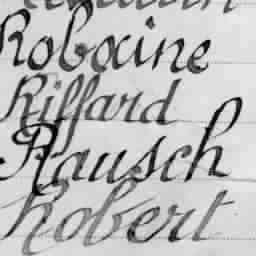 Robxine
Riffard
Rausch
Robert